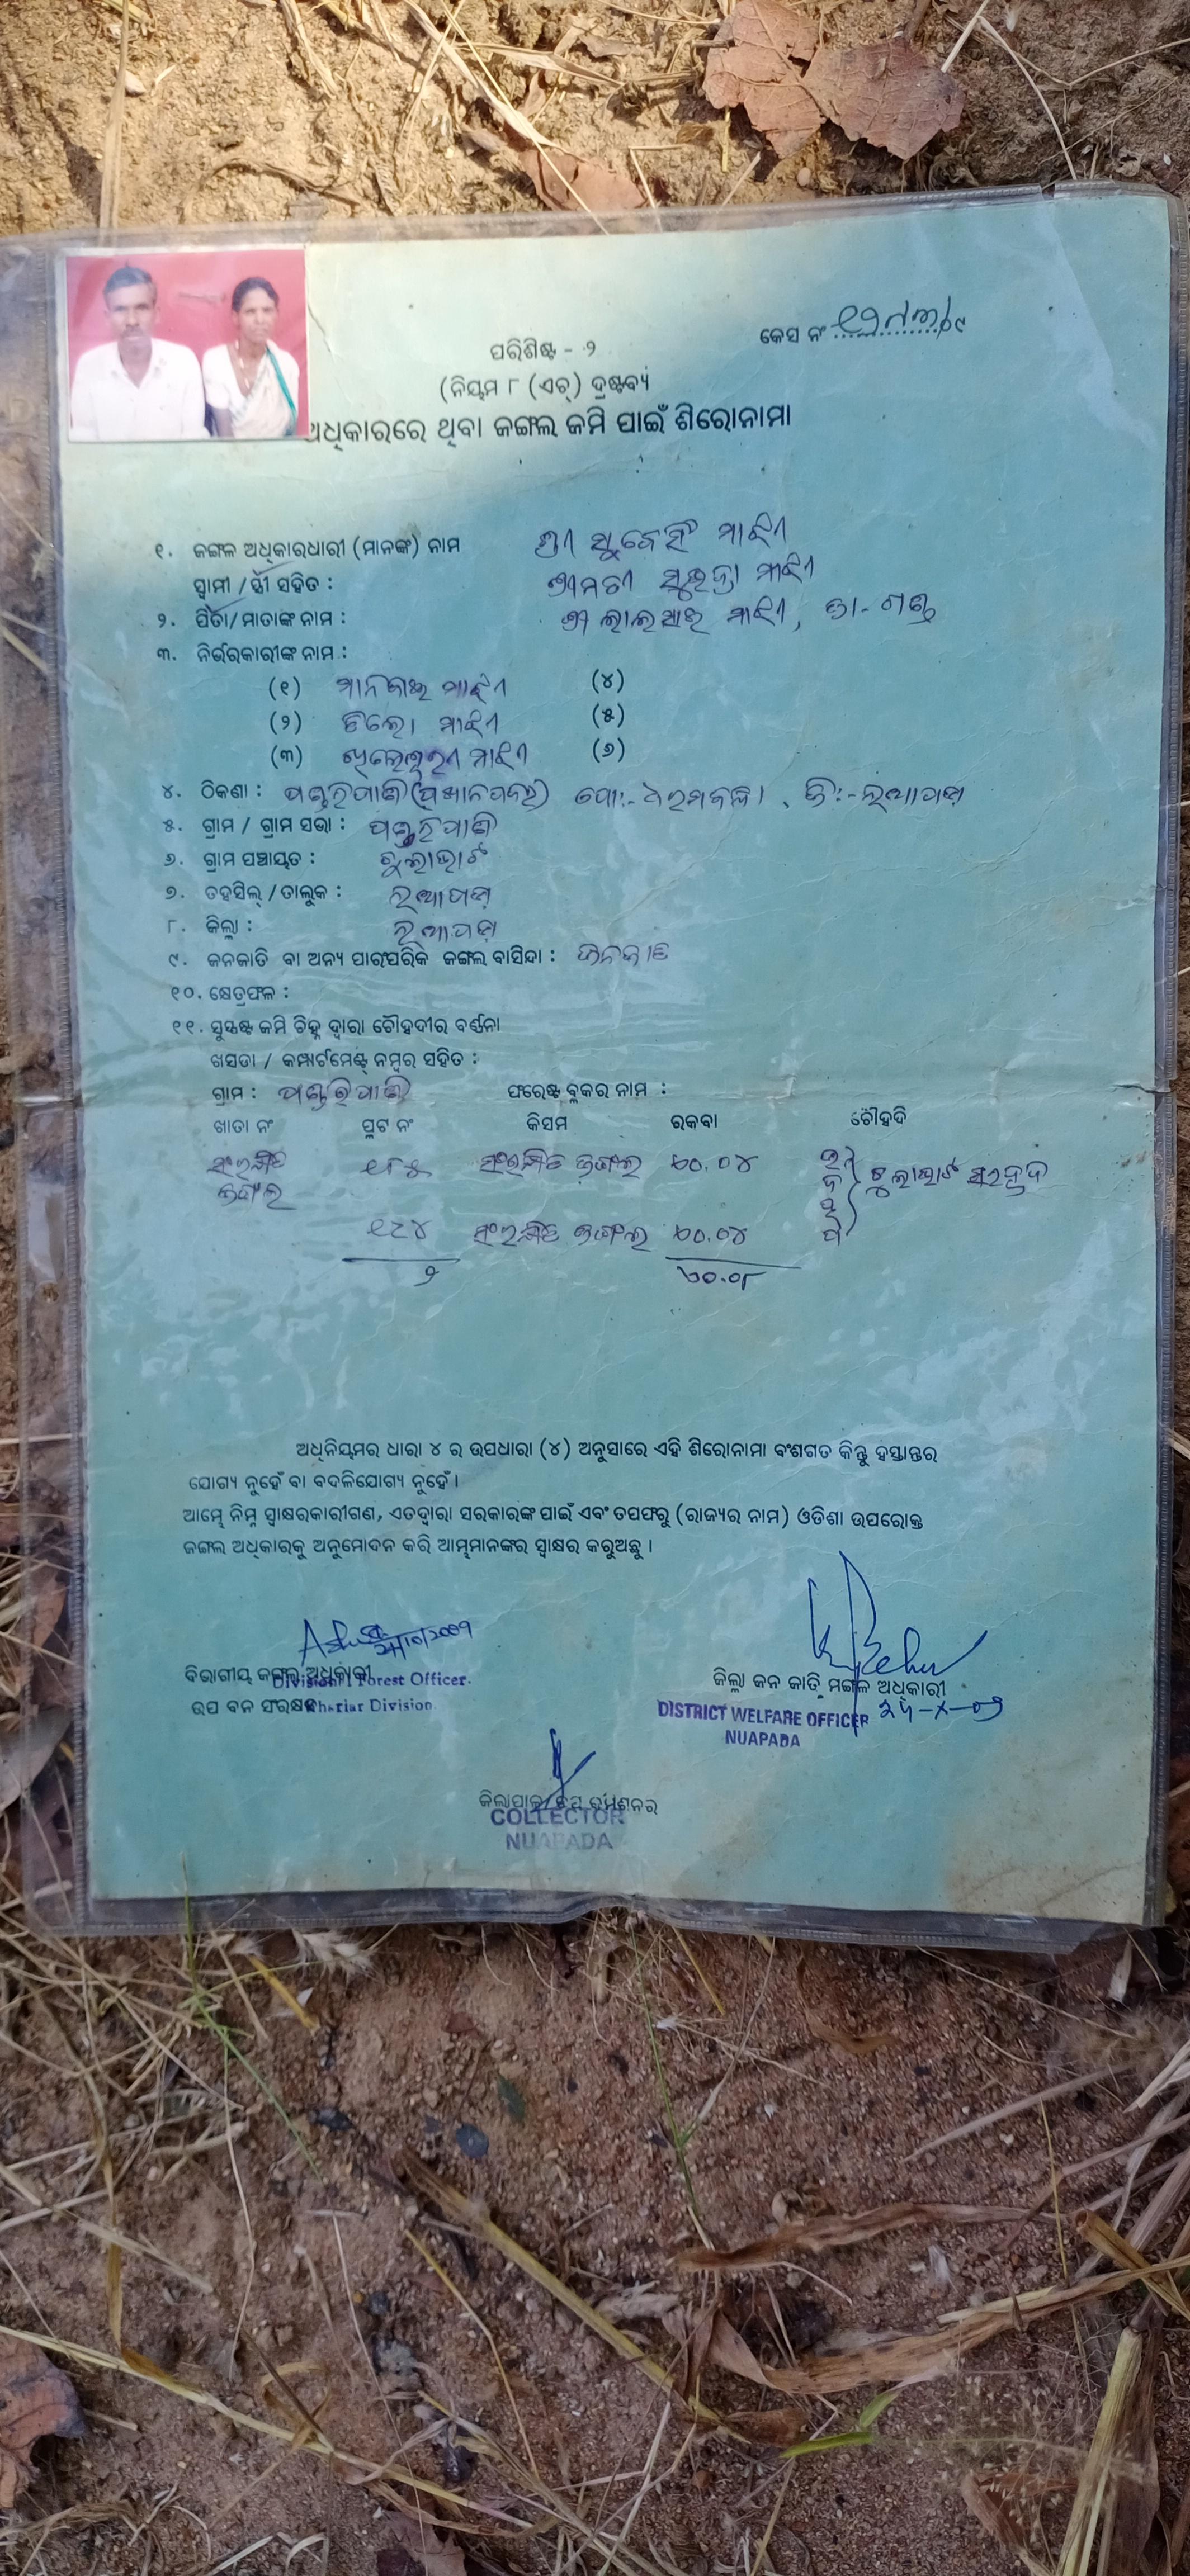 କେସ ନଂ ୧୨୮୩/୦୯
ପରିଶିଷ୍ଟ - ୨
(ନିୟମ ୮ (ଏଚ୍) ଦ୍ରଷ୍ଟବ୍ୟ
ଅଧିକାରରେ ଥିବା ଜଙ୍ଗଲ ଜମି ପାଇଁ ଶିରୋନାମା
୧. ଜଙ୍ଗଲ ଅଧିକାରଧାରୀ (ମାନଙ୍କ) ନାମ ଶ୍ରୀ ମାଝୀ
ସ୍ଵାମୀ / ସ୍ତ୍ରୀ ସହିତ : ଶ୍ରୀମତୀ ମାଝୀ
୨. ପିତା/ମାତାଙ୍କ ନାମ : ଶ୍ରୀ ଲାଲସାଇ ମାଝୀ, ଜା- ଗଣ୍ଡ
୩. ନିର୍ଭରକାରୀଙ୍କ ନାମ :
(୧) ମାଝୀ (୪)
(୨) ମାଝୀ (୫)
(୩) ମାଝୀ (୬)
୪. ଠିକଣା : ପୋ:- ଜି:- ନୂଆପଡ଼ା
୫. ଗ୍ରାମ / ଗ୍ରାମ ସଭା : ପଣ୍ଡରିପାଣି
୬. ଗ୍ରାମ ପଞ୍ଚାୟତ :
୭. ତହସିଲ୍ / ତାଲୁକ : ନୂଆପଡ଼ା
୮. ଜିଲ୍ଲା : ନୂଆପଡ଼ା
୯. ଜନଜାତି ବା ଅନ୍ୟ ପାରଂପରିକ ଜଙ୍ଗଲ ବାସିନ୍ଦା : ଜନଜାତି
୧୦. କ୍ଷେତ୍ରଫଳ :
୧୧. ସୁସ୍ପଷ୍ଟ ଜମି ଚିହ୍ନ ଦ୍ୱାରା ଚୌହଦୀର ବର୍ଣ୍ଣନା
ଖସଡା / କମ୍ପାର୍ଟମେଣ୍ଟ୍ ନମ୍ବର ସହିତ :
ଗ୍ରାମ : ପଣ୍ଡରିପାଣି ଫରେଷ୍ଟ ବ୍ଲକର ନାମ :
ଖାତା ନଂ ପ୍ଲଟ ନଂ କିସମ ରକବା ଚୌହଦି
ସଂରକ୍ଷିତ ୧୮୫ ସଂରକ୍ଷିତ ଜଙ୍ଗଲ ୦.୦୪
ଜଙ୍ଗଲ
ସଂରକ୍ଷିତ ଜଙ୍ଗଲ ୦.୦୪
୨ ୦.୦୮
ଅଧିନିୟମର ଧାରା ୪ ର ଉପଧାରା (୪) ଅନୁସାରେ ଏହି ଶିରୋନାମା ବଂଶଗତ କିନ୍ତୁ ହସ୍ତାନ୍ତର
ଯୋଗ୍ୟ ନୁହେଁ ବା ବଦଳିଯୋଗ୍ୟ ନୁହେଁ।
ଆମ୍ଭେ ନିମ୍ନ ସ୍ୱାକ୍ଷରକାରୀଗଣ, ଏତଦ୍ୱାରା ସରକାରଙ୍କ ପାଇଁ ଏବଂ ତପଫରୁ (ରାଜ୍ୟର ନାମ) ଓଡିଶା ଉପରୋକ୍ତ
ଜଙ୍ଗଲ ଅଧିକାରକୁ ଅନୁମୋଦନ କରି ଆମ୍ଭମାନଙ୍କର ସ୍ୱାକ୍ଷର କରୁଅଛୁ।
ବିଭାଗୀୟ ଜଙ୍ଗଲ ଅଧିକାରୀ
Divisional Forest Officer.
ଉପ ବନ ସଂରକ୍ଷକ
Khariar Division.
ଜିଲ୍ଲା ଜନ ଜାତି ମଙ୍ଗଳ ଅଧିକାରୀ
DISTRICT WELFARE OFFICER
NUAPADA
ଜିଲାପାଳ/
COLLECTOR
NUAPADA